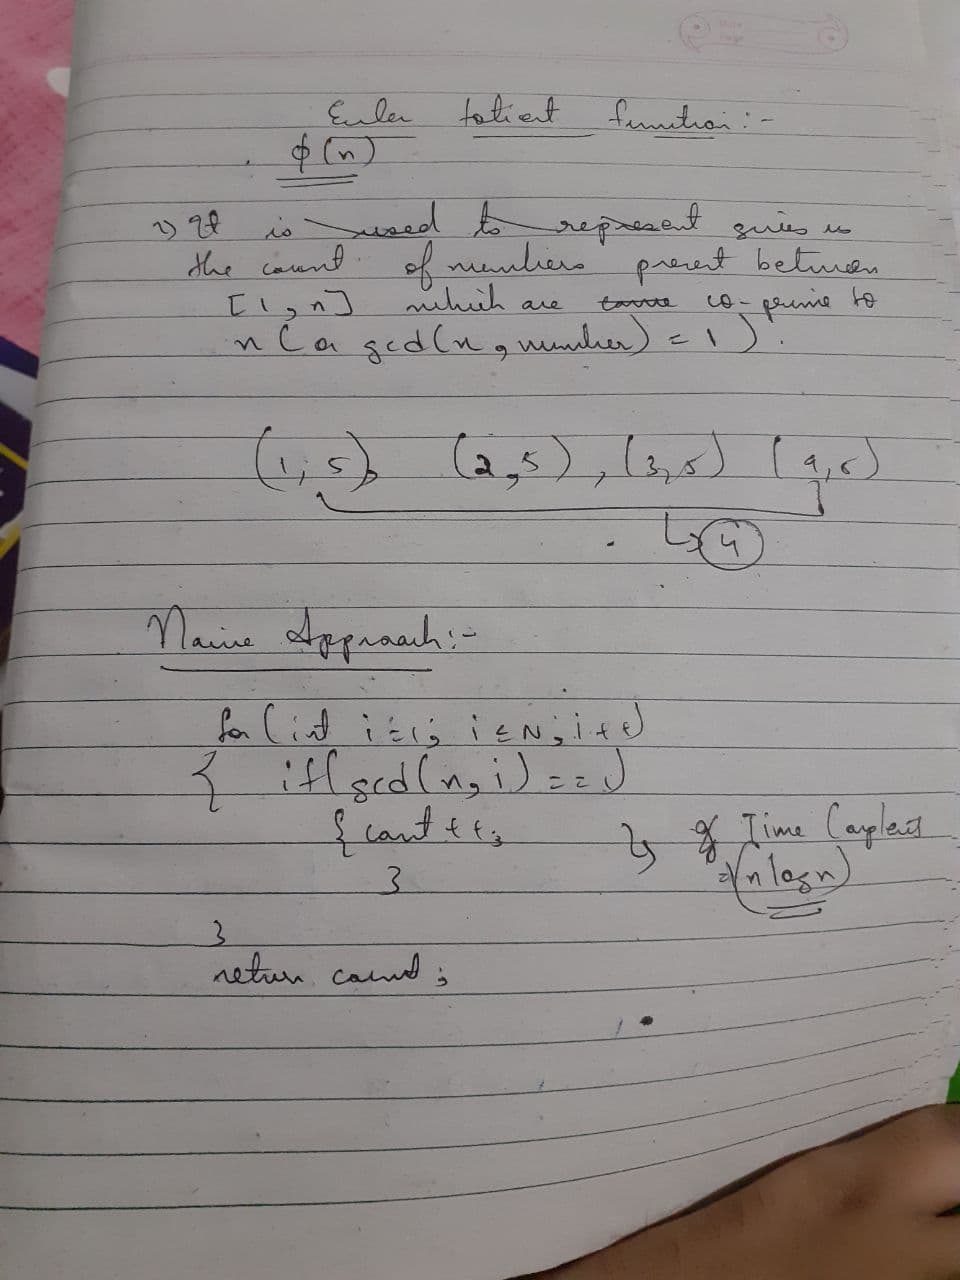 Euler totient function :-
ϕ(n)
→ It is used to represent gives us
the count of numbers present between
[1, n] which are co-prime to
n (or gcd(n, number) = 1).
(1, 5), (2, 5), (3, 5) (4, 5)
↳ 4
Naive Approach:-
for (int i=1; i≤N; i++)
{ if(gcd(n, i) == 1)
{ count++;
} ↳ Time Complexity
= (n log n)
}
return count;